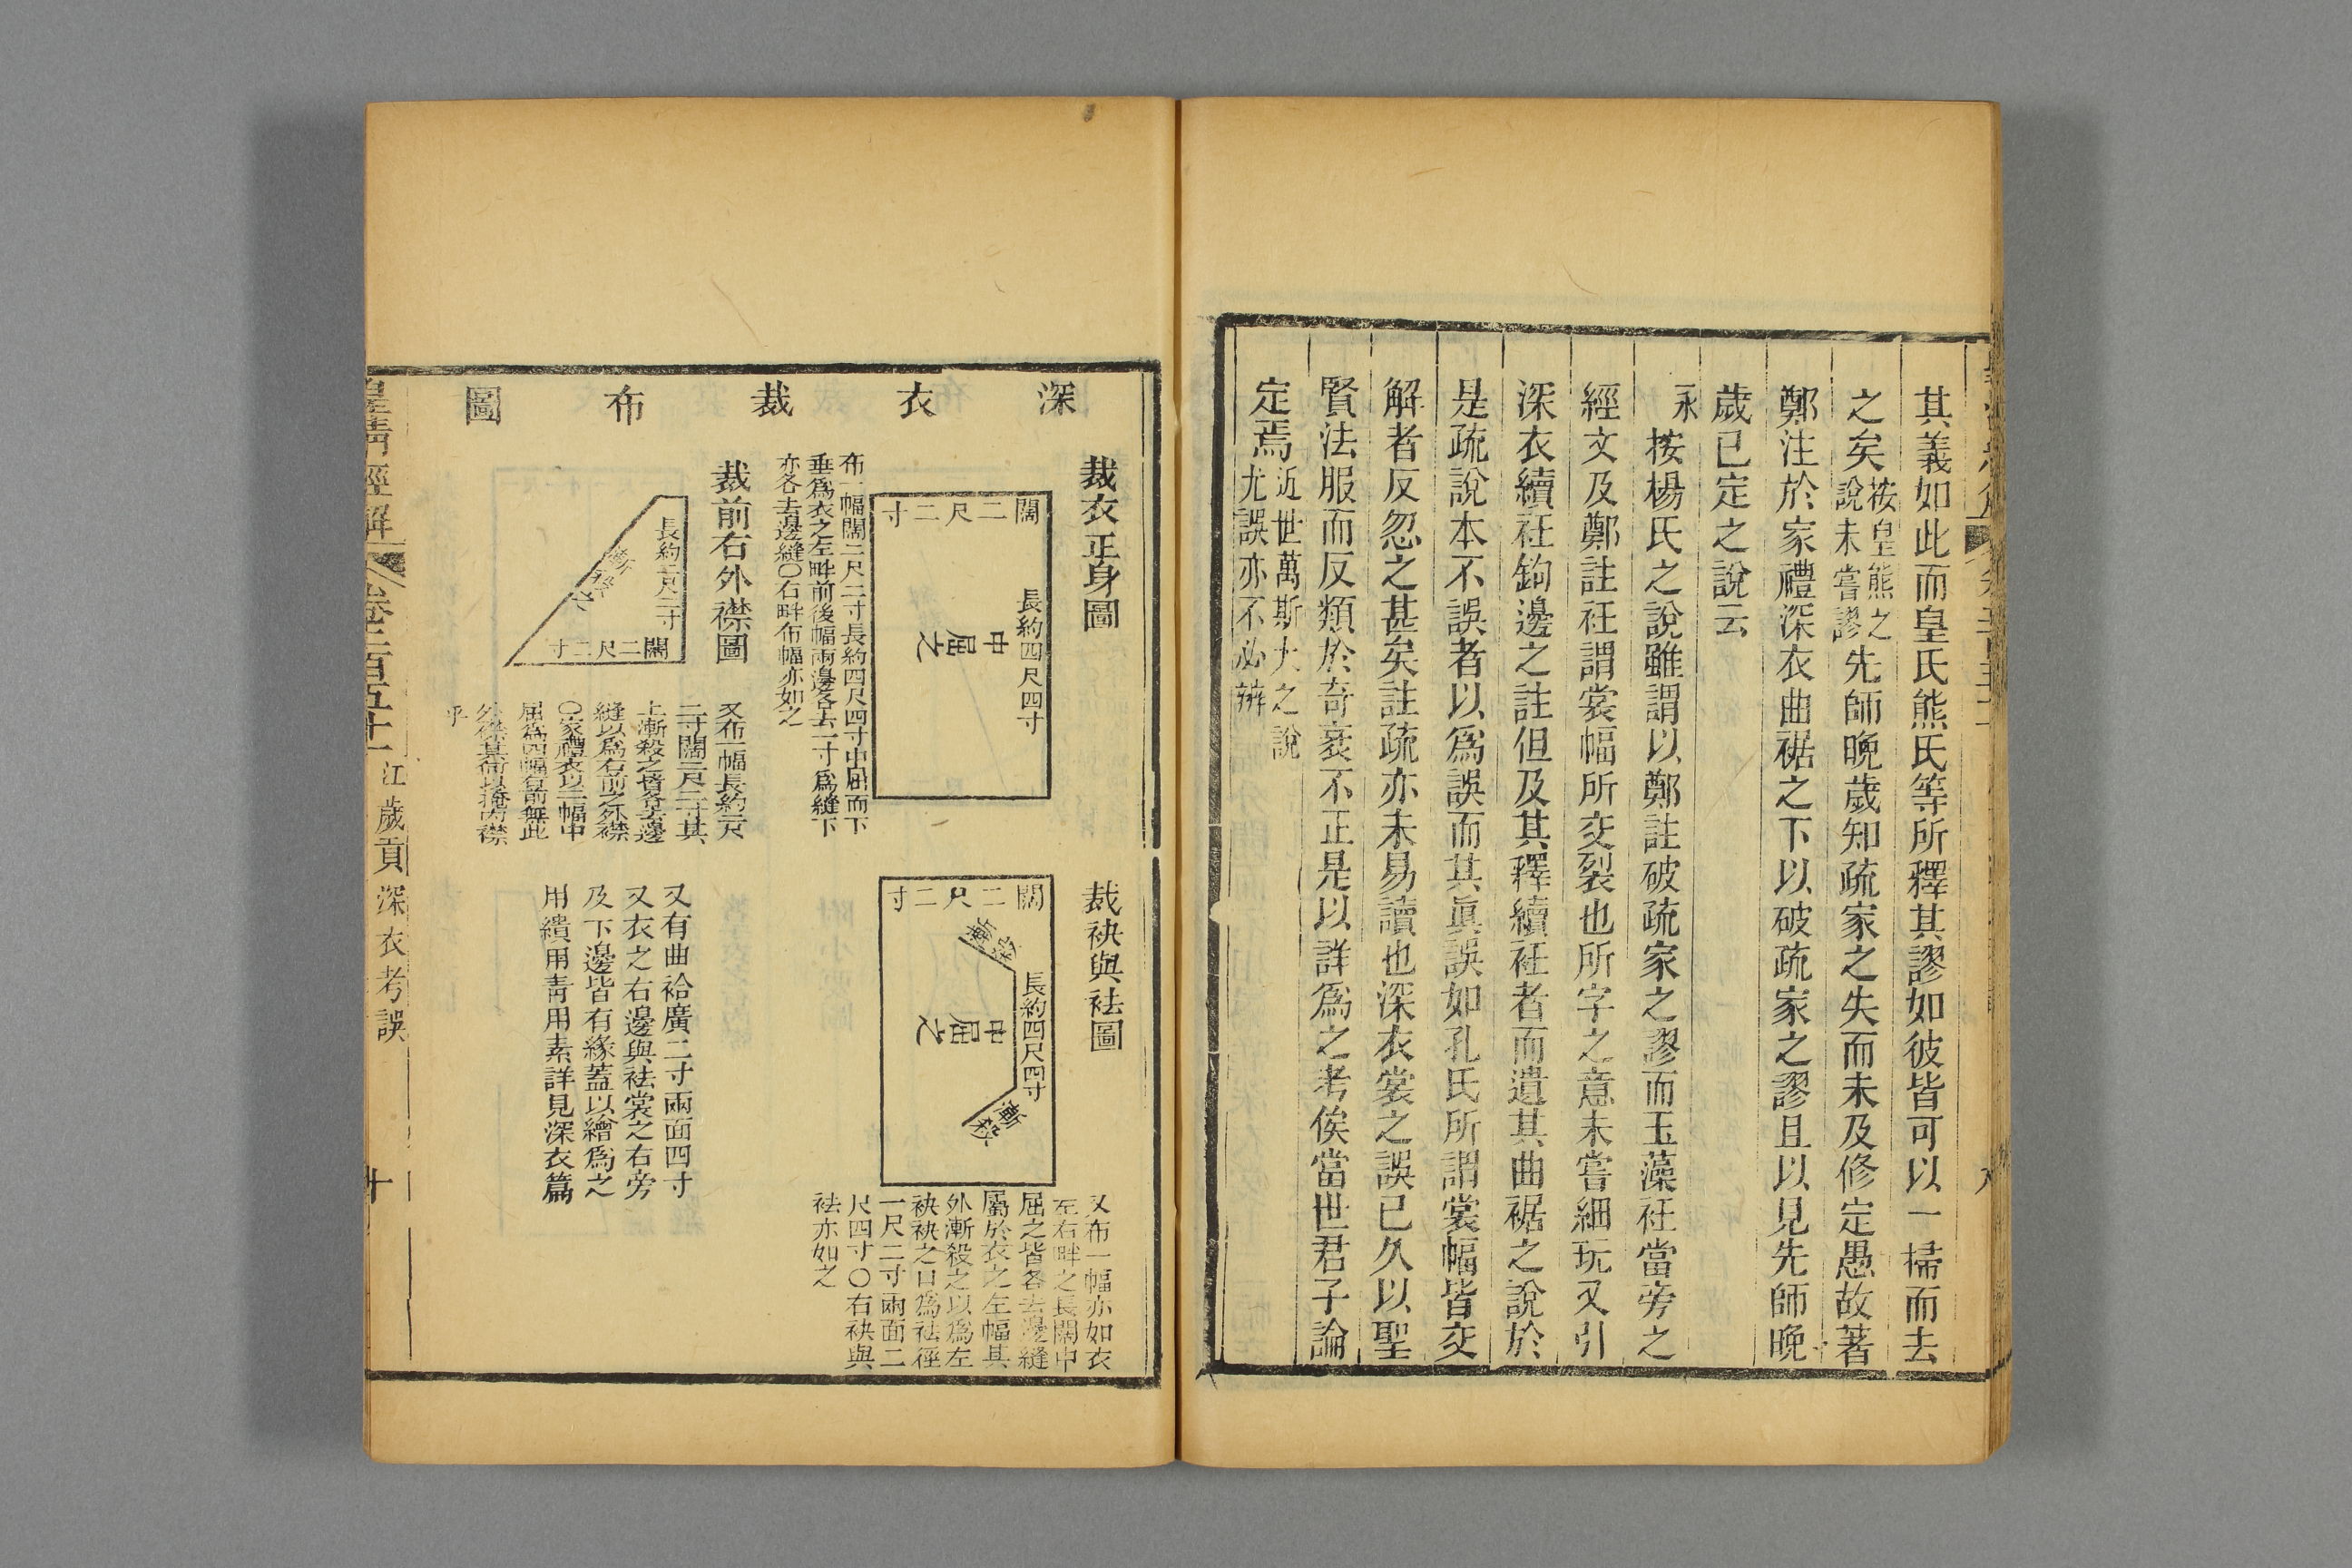 其義如此而皇氏熊氏等所釋其謬如彼皆可以一掃而去
之矣按皇熊之說未嘗謬先師晚歲知疏家之失而未及修定愚故著
鄭注於家禮深衣曲裾之下以破疏家之謬且以見先師晚
歲已定之說云
永按楊氏之說雖謂以鄭註破疏家之謬而玉藻衽當旁之
經文及鄭註衽謂裳幅所交裂也所字之意未嘗細玩又引
深衣續衽鉤邊之註但及其釋續衽者而遺其曲裾之說於
是疏說本不誤者以爲誤而其眞誤如孔氏所謂裳幅皆交
解者反忽之甚矣註疏亦未易讀也深衣裳之誤已久以聖
賢法服而反類於奇衺不正是以詳爲之考俟當世君子論
定焉近世萬斯大之說尤誤亦不必辨
深衣裁布圖
裁衣正身圖
闊二尺二寸
長約四尺四寸
中屈之
布一幅闊二尺二寸長約四尺四寸中屈而下
垂爲衣之左畔前後幅兩邊各去一寸爲縫下
亦各去邊縫〇右畔布幅亦如之
裁前右外襟圖
長約二尺二寸
漸殺之
闊二尺二寸
又布一幅長約二尺
二寸闊二尺二寸其
上漸殺之皆各去邊
縫以爲右前之外襟
〇家禮衣以二幅中
屈爲四幅右前無此
外襟其何以掩內襟
乎
裁袂與袪圖
闊二尺二寸
漸殺
長約四尺四寸
中屈之
漸殺
又布一幅亦如衣
左右畔之長闊中
屈之皆各去邊縫
屬於衣之左幅其
外漸殺之以爲左
袂袂之口爲袪徑
一尺二寸兩面二
尺四寸〇右袂與
袪亦如之
又有曲袷廣二寸兩面四寸
又衣之右邊與袪裳之右旁
及下邊皆有緣蓋以繪爲之
用繢用靑用素詳見深衣篇
皇淸經解
卷二百五十一
江歲貢深衣考誤
十